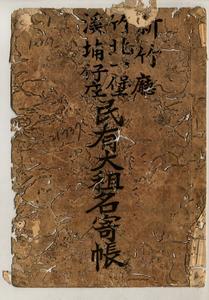 新竹廳
竹北一堡
溪埔子庄
民有大租名寄帳